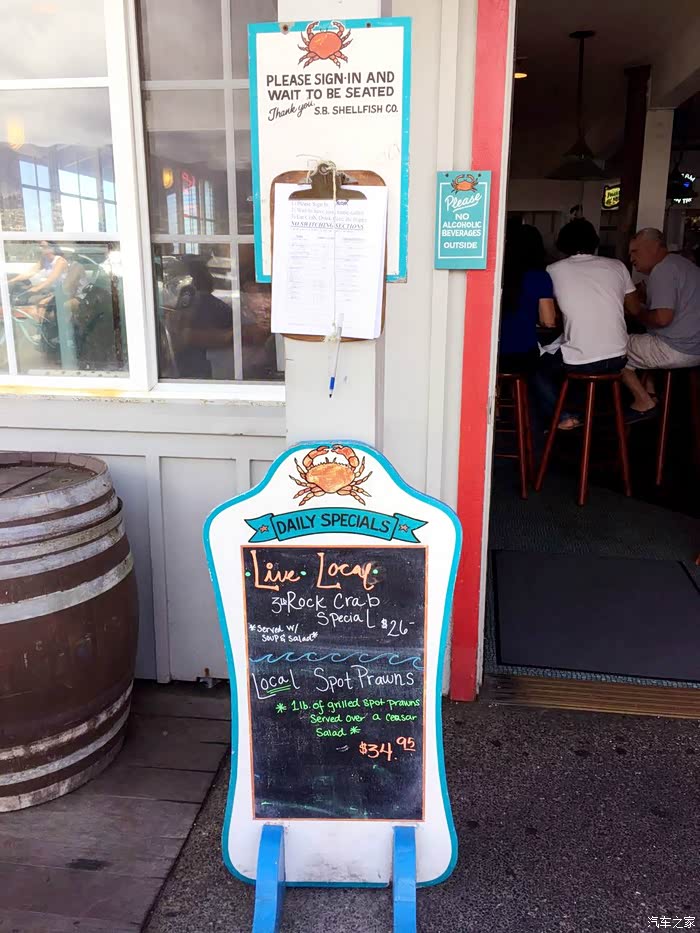 PLEASE SIGN-IN AND
WAIT TO BE SEATED
Thank you, S.B. SHELLFISH CO.
NO SWITCHING SECTIONS
Please
NO
ALCOHOLIC
BEVERAGES
OUTSIDE
DAILY SPECIALS
Live • Local •
3lb Rock Crab
Special $26-
*Served w/
Soup & Salad*
Local Spot Prawns
* 1 lb. of grilled spot prawns
Served over a ceasar
Salad *
$34.95
汽车之家